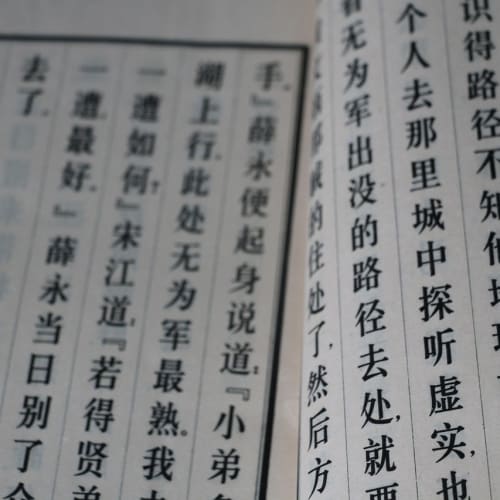 识得路径不知他地
个人去那里城中探听虚实,也
看无为军出没的路径去处,就要
的住处了,然后方
手。』薛永便起身说道:『小弟
湖上行,此处无为军最熟。我
一遭如何?』宋江道:『若得贤弟
一遭最好。』薛永当日别了
去了。